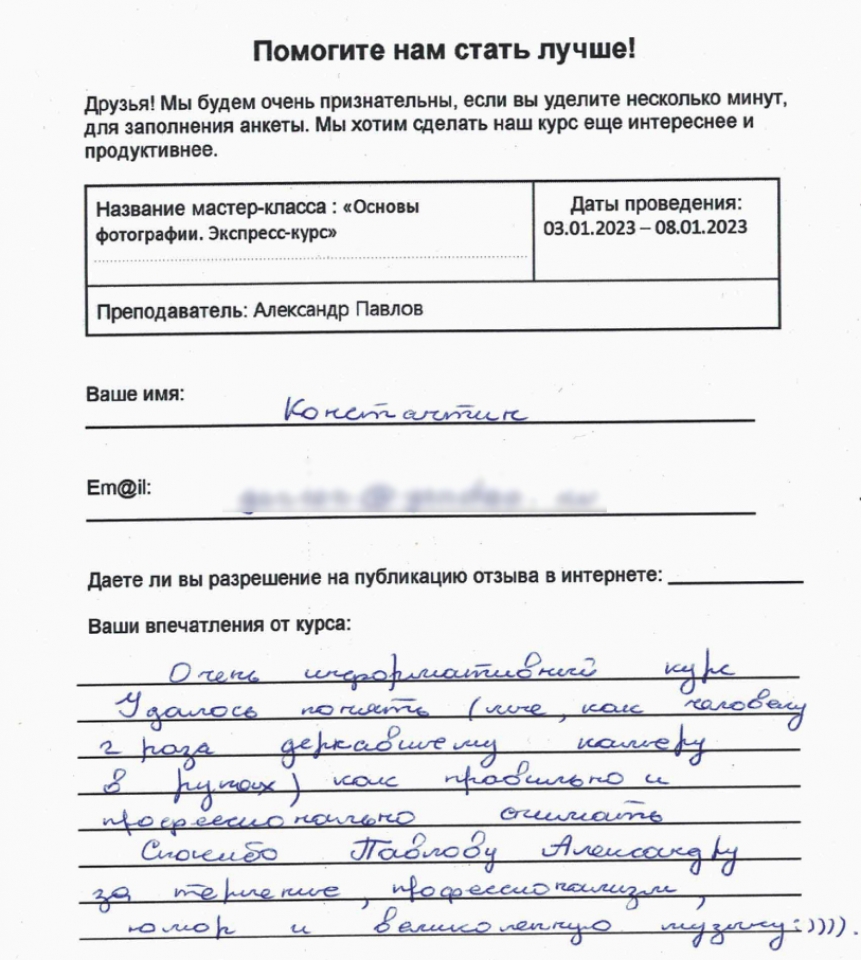 Помогите нам стать лучше!
Друзья! Мы будем очень признательны, если вы уделите несколько минут,
для заполнения анкеты. Мы хотим сделать наш курс еще интереснее и
продуктивнее.
Название мастер-класса : «Основы
фотографии. Экспресс-курс»
Даты проведения:
03.01.2023 – 08.01.2023
Преподаватель: Александр Павлов
Ваше имя:
Константин
Em@il:
Даете ли вы разрешение на публикацию отзыва в интернете:
Ваши впечатления от курса:
Очень информативный курс
Удалось понять (мне, как человеку
2 раза державшему камеру
в руках) как правильно и
профессионально снимать
Спасибо Павлову Александру
за терпение, профессионализм,
юмор и великолепную музыку:)))).